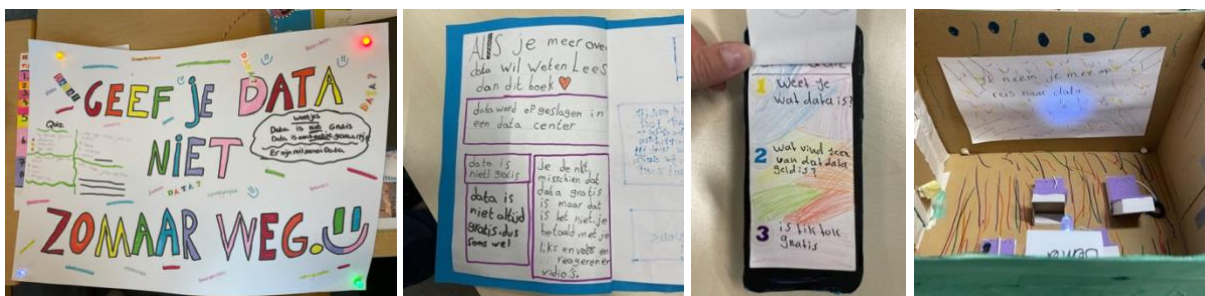 GEEF JE DATA
NIET
ZOMAAR WEG.
DATA?
DATA?
Quiz
weetjes
Data is niet Gratis
Data is
Er zijn miljoenen Data
ALS je meer over
data wil weten Lees
dan dit boek
data word opgeslagen in
een data center
data is
niet gratis
data is
niet altijd
gratis dus
soms wel
Je denkt
misschien dat
data gratis
is maar dat
is het niet je
betaald met je
liks en vots en
reageren en
vidio's.
1 Weet je
wat data is?
2 wat vind je er
van dat data
geld is?
3 is tik tok
gratis
Ik neem je mee op
reis naar data